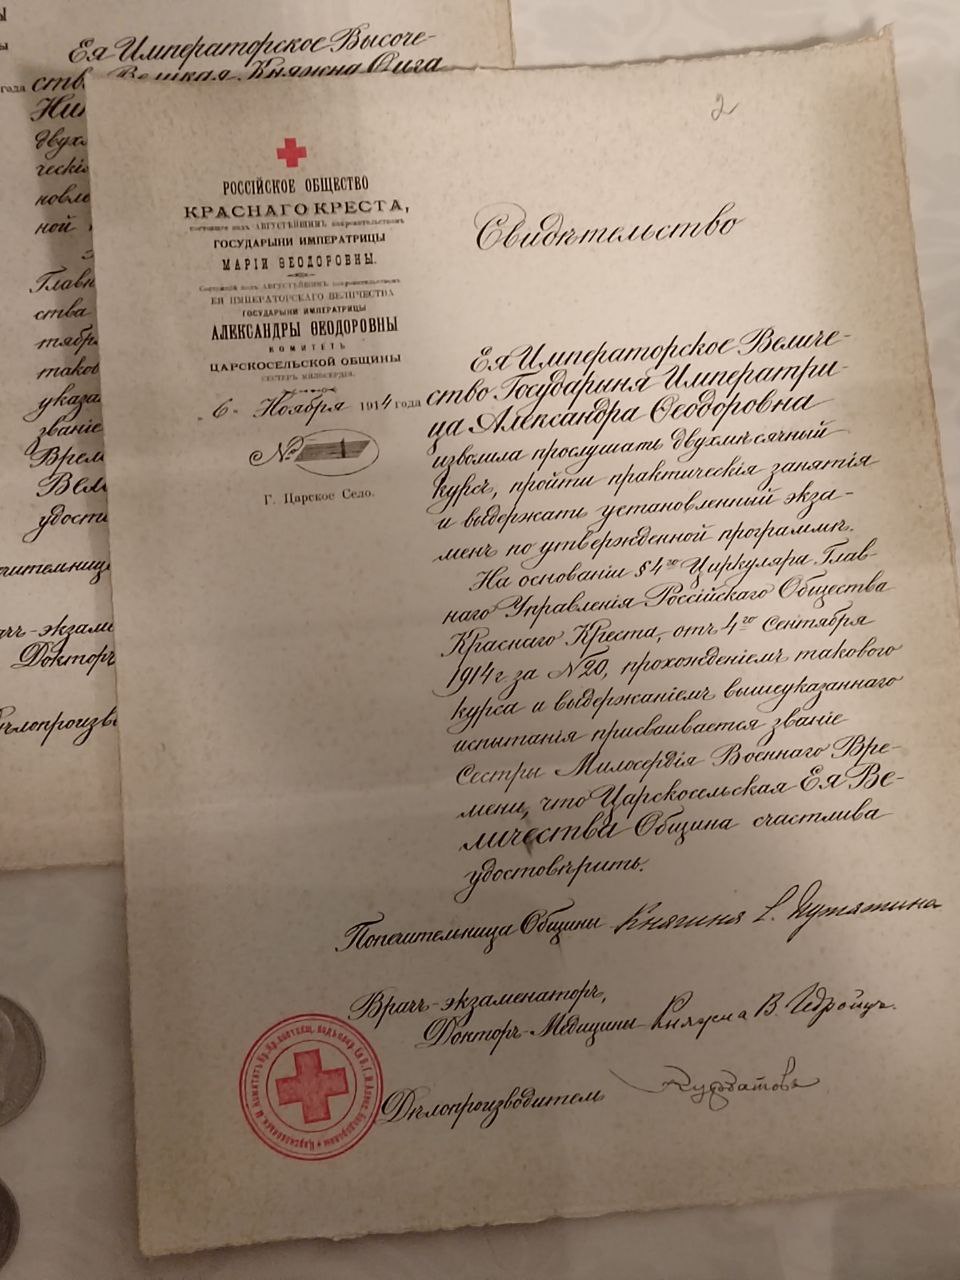 Ея Императорское Высоче-
ств Великая Княжна Ольга
года
двух
ческі
новле
ной
Главн
ства
тябр
таков
указа
званіе
Врем
Вел
удост
Докторъ
2
РОССІЙСКОЕ ОБЩЕСТВО
КРАСНАГО КРЕСТА,
состоящее подъ АВГУСТѢЙШИМЪ покровительствомъ
ГОСУДАРЫНИ ИМПЕРАТРИЦЫ
МАРІИ ѲЕОДОРОВНЫ.
Состоящій подъ АВГУСТѢЙШИМЪ покровительствомъ
ЕЯ ИМПЕРАТОРСКАГО ВЕЛИЧЕСТВА
ГОСУДАРЫНИ ИМПЕРАТРИЦЫ
АЛЕКСАНДРЫ ѲЕОДОРОВНЫ
КОМИТЕТЪ
ЦАРСКОСЕЛЬСКОЙ ОБЩИНЫ
СЕСТЕРЪ МИЛОСЕРДІЯ.
„6" Ноября 1914 года
№ 1
Г. Царское Село.
Свидѣтельство
Ея Императорское Величе-
ство Государыня Императри-
ца Александра Ѳеодоровна
изволила прослушать двухмѣсячный
курсъ, пройти практическія занятія
и выдержать установленный экза-
менъ по утвержденной программѣ.
На основаніи §4го Циркуляра Глав-
наго Управленія Россійскаго Общества
Краснаго Креста, отъ 4го Сентября
1914 г за №20, прохожденіемъ такового
курса и выдержаніемъ вышеуказаннаго
испытанія присваивается званіе
Сестры Милосердія Военнаго Вре-
мени, что Царскосельская Ея Ве-
личества Община счастлива
удостовѣрить.
Попечительница Общины Княгиня Е. Путятина
Врачъ-экзаменаторъ,
Докторъ-Медицины Княжна В. Гедройцъ.
Дѣлопроизводитель